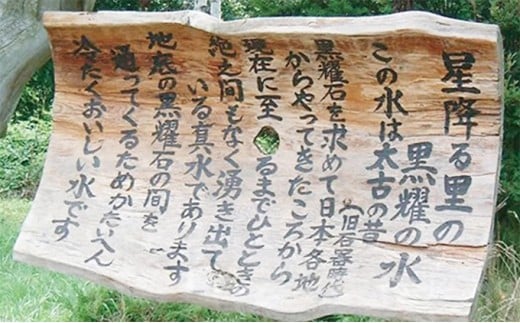 星降る里の
黒耀の水
この水は太古の昔
(旧石器時代)
黒耀石を求めて日本各地
からやってきたころから
現在に至るまでひとときの
絶之間もなく湧き出て
いる真水であります
地底の黒耀石の間を
通ってくるためかたいへん
冷たくおいしい水です